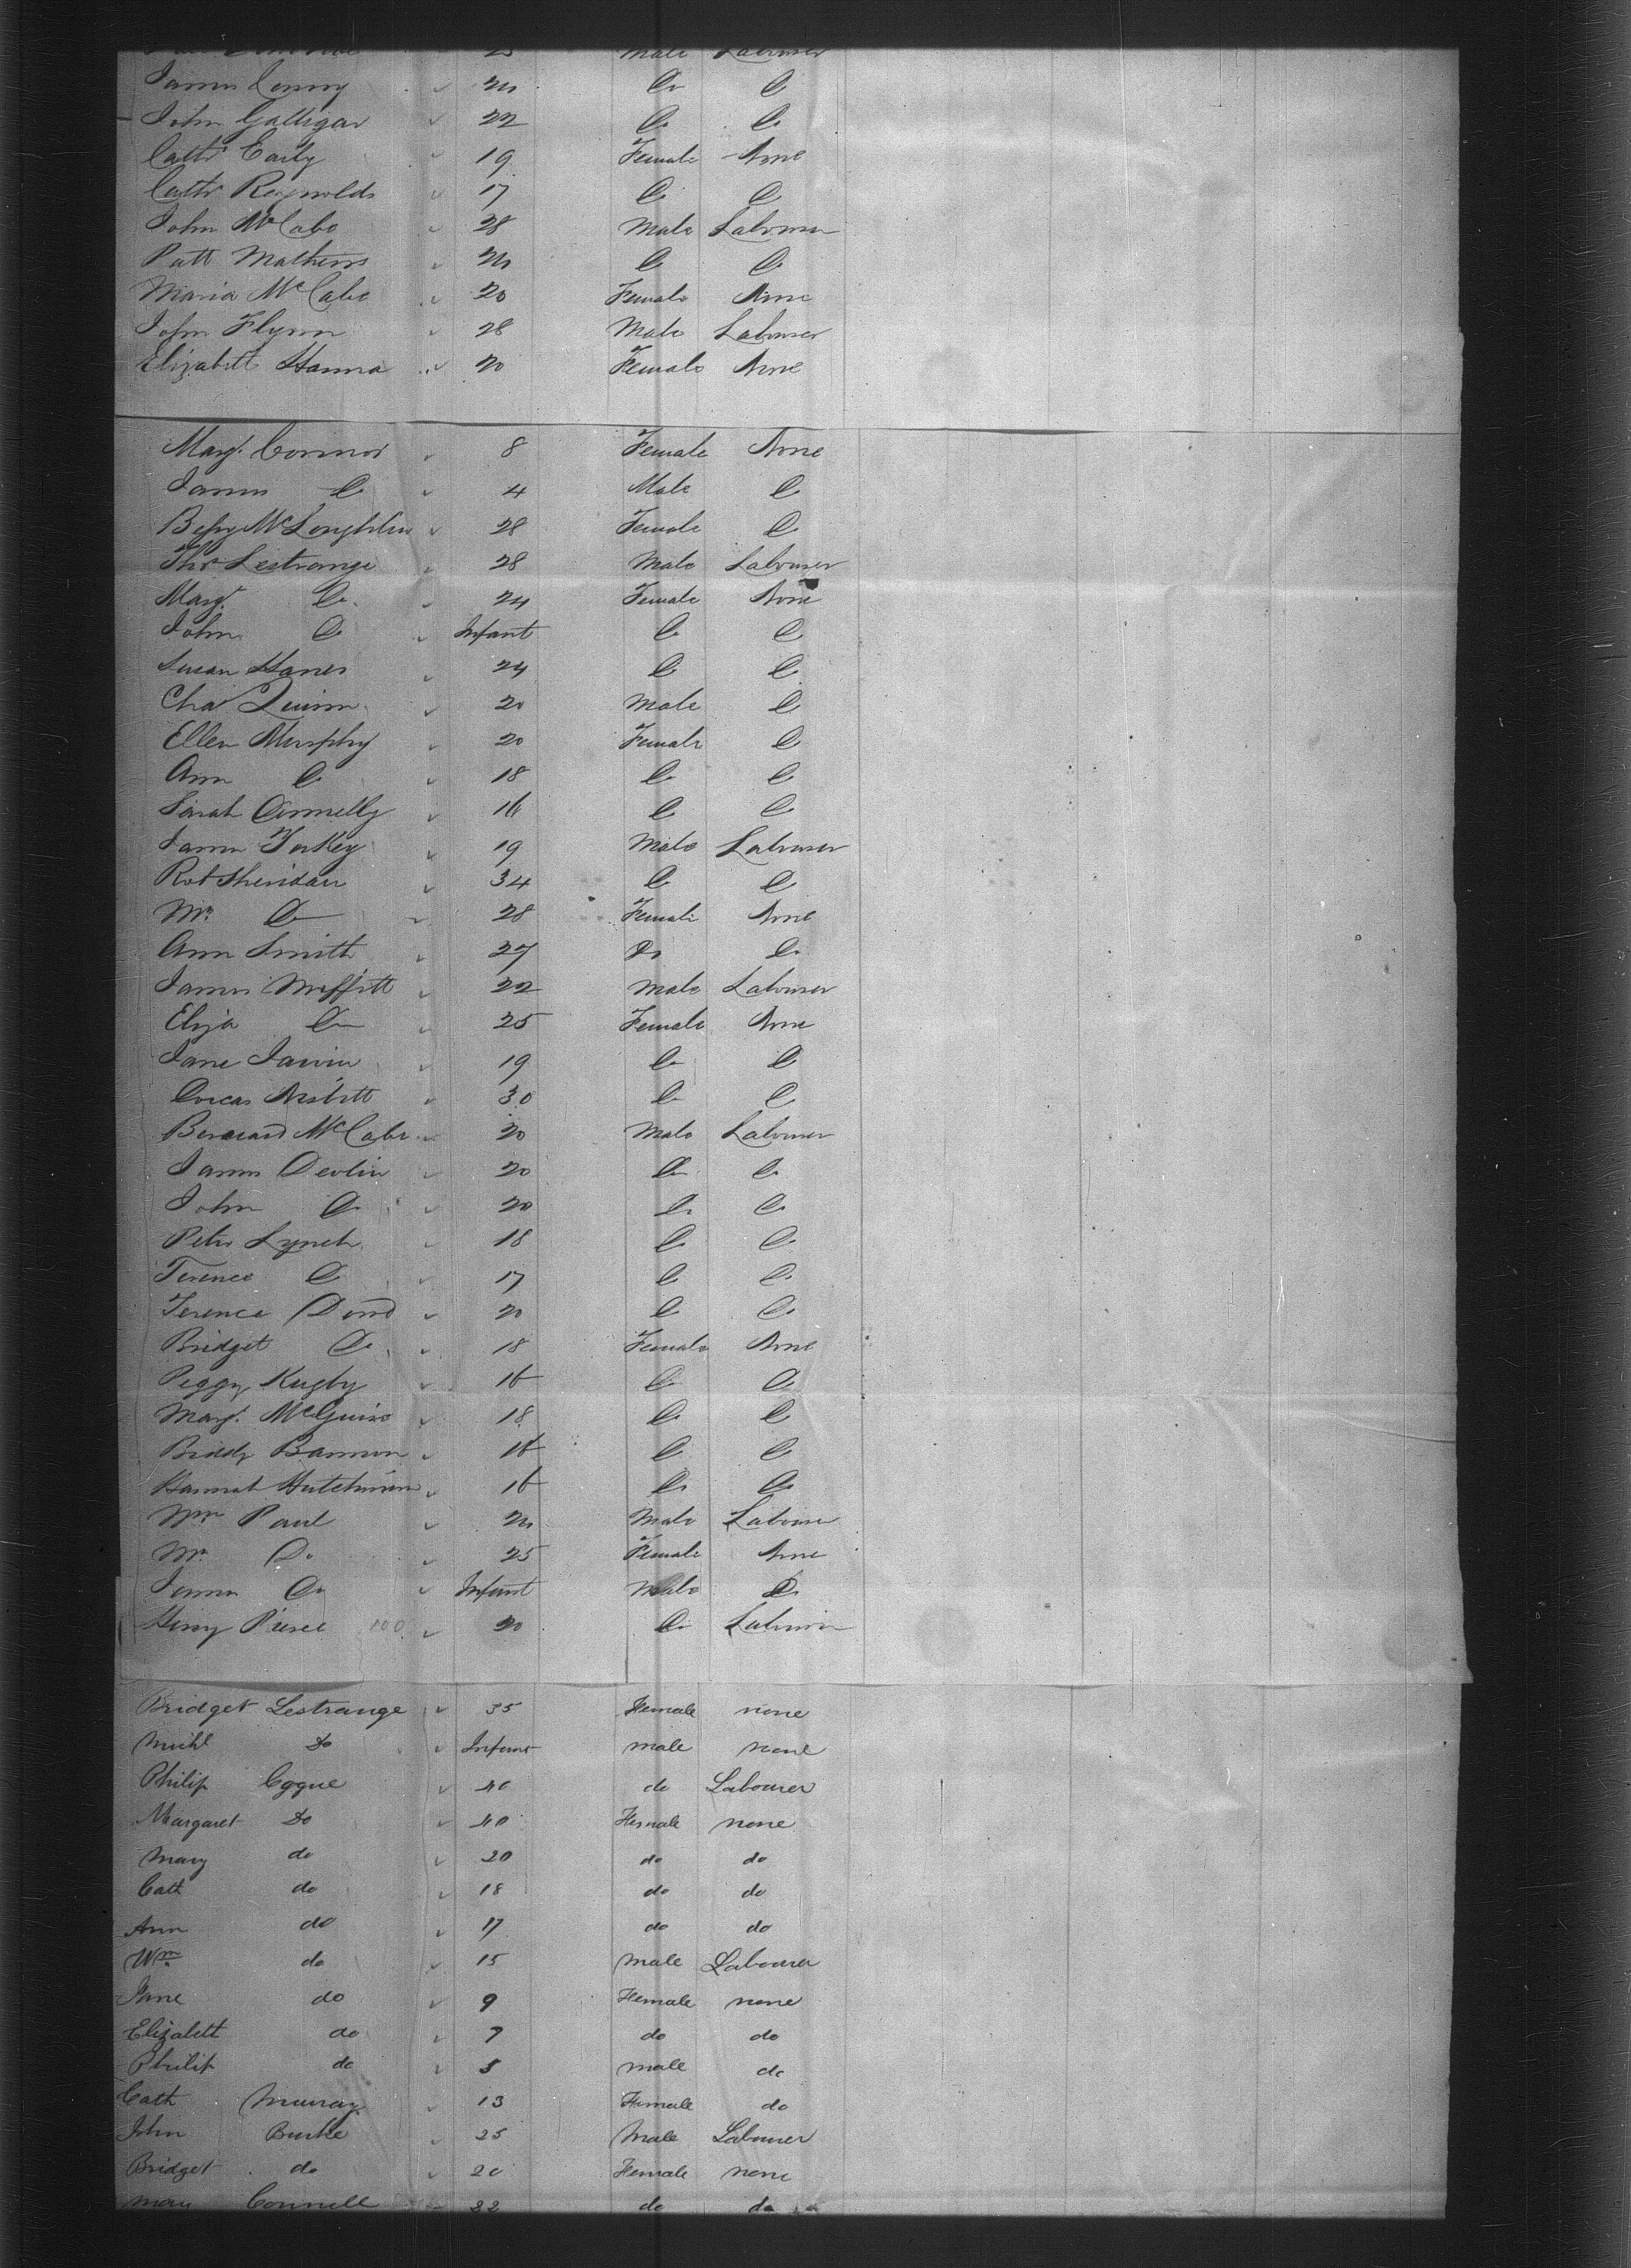 25 Male Labourer
James Conroy 24 Do Do
John Galligar 22 Do Do
Cath Early 19 Female None
Cathr Reynolds 17 Do Do
John McCabe 28 Male Labourer
Patt Mathews 24 Do Do
Maria McCabe 20 Female None
John Flynn 28 Male Labourer
Elizabeth Hanna 20 Female None
Margt Connor 8 Female None
James Do 4 Male Do
Bessy McLoughlin 28 Female Do
Thos Lestrange 28 Male Labourer
Margt Do 24 Female None
John Do Infant Do Do
Susan Hanes 24 Do Do
Chas Quinn 20 Male Do
Ellen Murphy 20 Female Do
Ann Do 18 Do Do
Sarah Donnelly 16 Do Do
James 19 Male Labourer
Robt Sheridan 34 Do Do
Mrs Do 28 Female None
Ann Smith 27 Do Do
James Moffitt 22 Male Labourer
Eliza Do 25 Female None
Jane 19 Do Do
Dorcas Nesbitt 30 Do Do
Bernard McCabe 20 Male Labourer
James Devlin 20 Do Do
John Do 20 Do Do
Peter Lynch 18 Do Do
Terence Do 17 Do Do
Terence Dowd 20 Do Do
Bridget Do 18 Female None
Peggy 16 Do Do
Margt McGuire 18 Do Do
Biddy Bannon 16 Do Do
Hannah Hutchinson 16 Do Do
Wm Paul 24 Male Labourer
Mrs Do 25 Female None
James Do Infant Male Do
Henry Pierce 100 20 Do Labourer
Bridget Lestrange 35 Female none
Michl Do Infant male none
Philip Coyne 40 do Labourer
Margaret Do 40 Female none
Mary do 20 do do
Cath do 18 do do
Ann do 17 do do
Wm do 15 male Labourer
Jane do 9 Female none
Elizabeth do 7 do do
Philip do 5 male do
Cath Murray 13 Female do
John Burke 25 Male Labourer
Bridget do 20 Female none
Mary Connell 22 do do